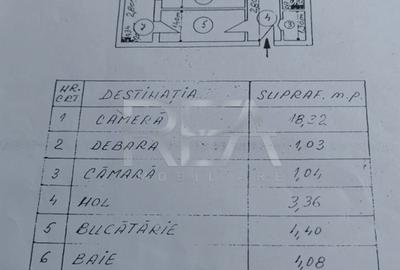 2,80
7
1,40
5
2,80
4
3
1,30
NR. CRT DESTINAȚIA SUPRAF. m.p.
1 CAMERĂ 18,32
2 DEBARA 1,03
3 CĂMARĂ 1,04
4 HOL 3,36
5 BUCĂTĂRIE 1,40
6 BAIE 4,08
REA